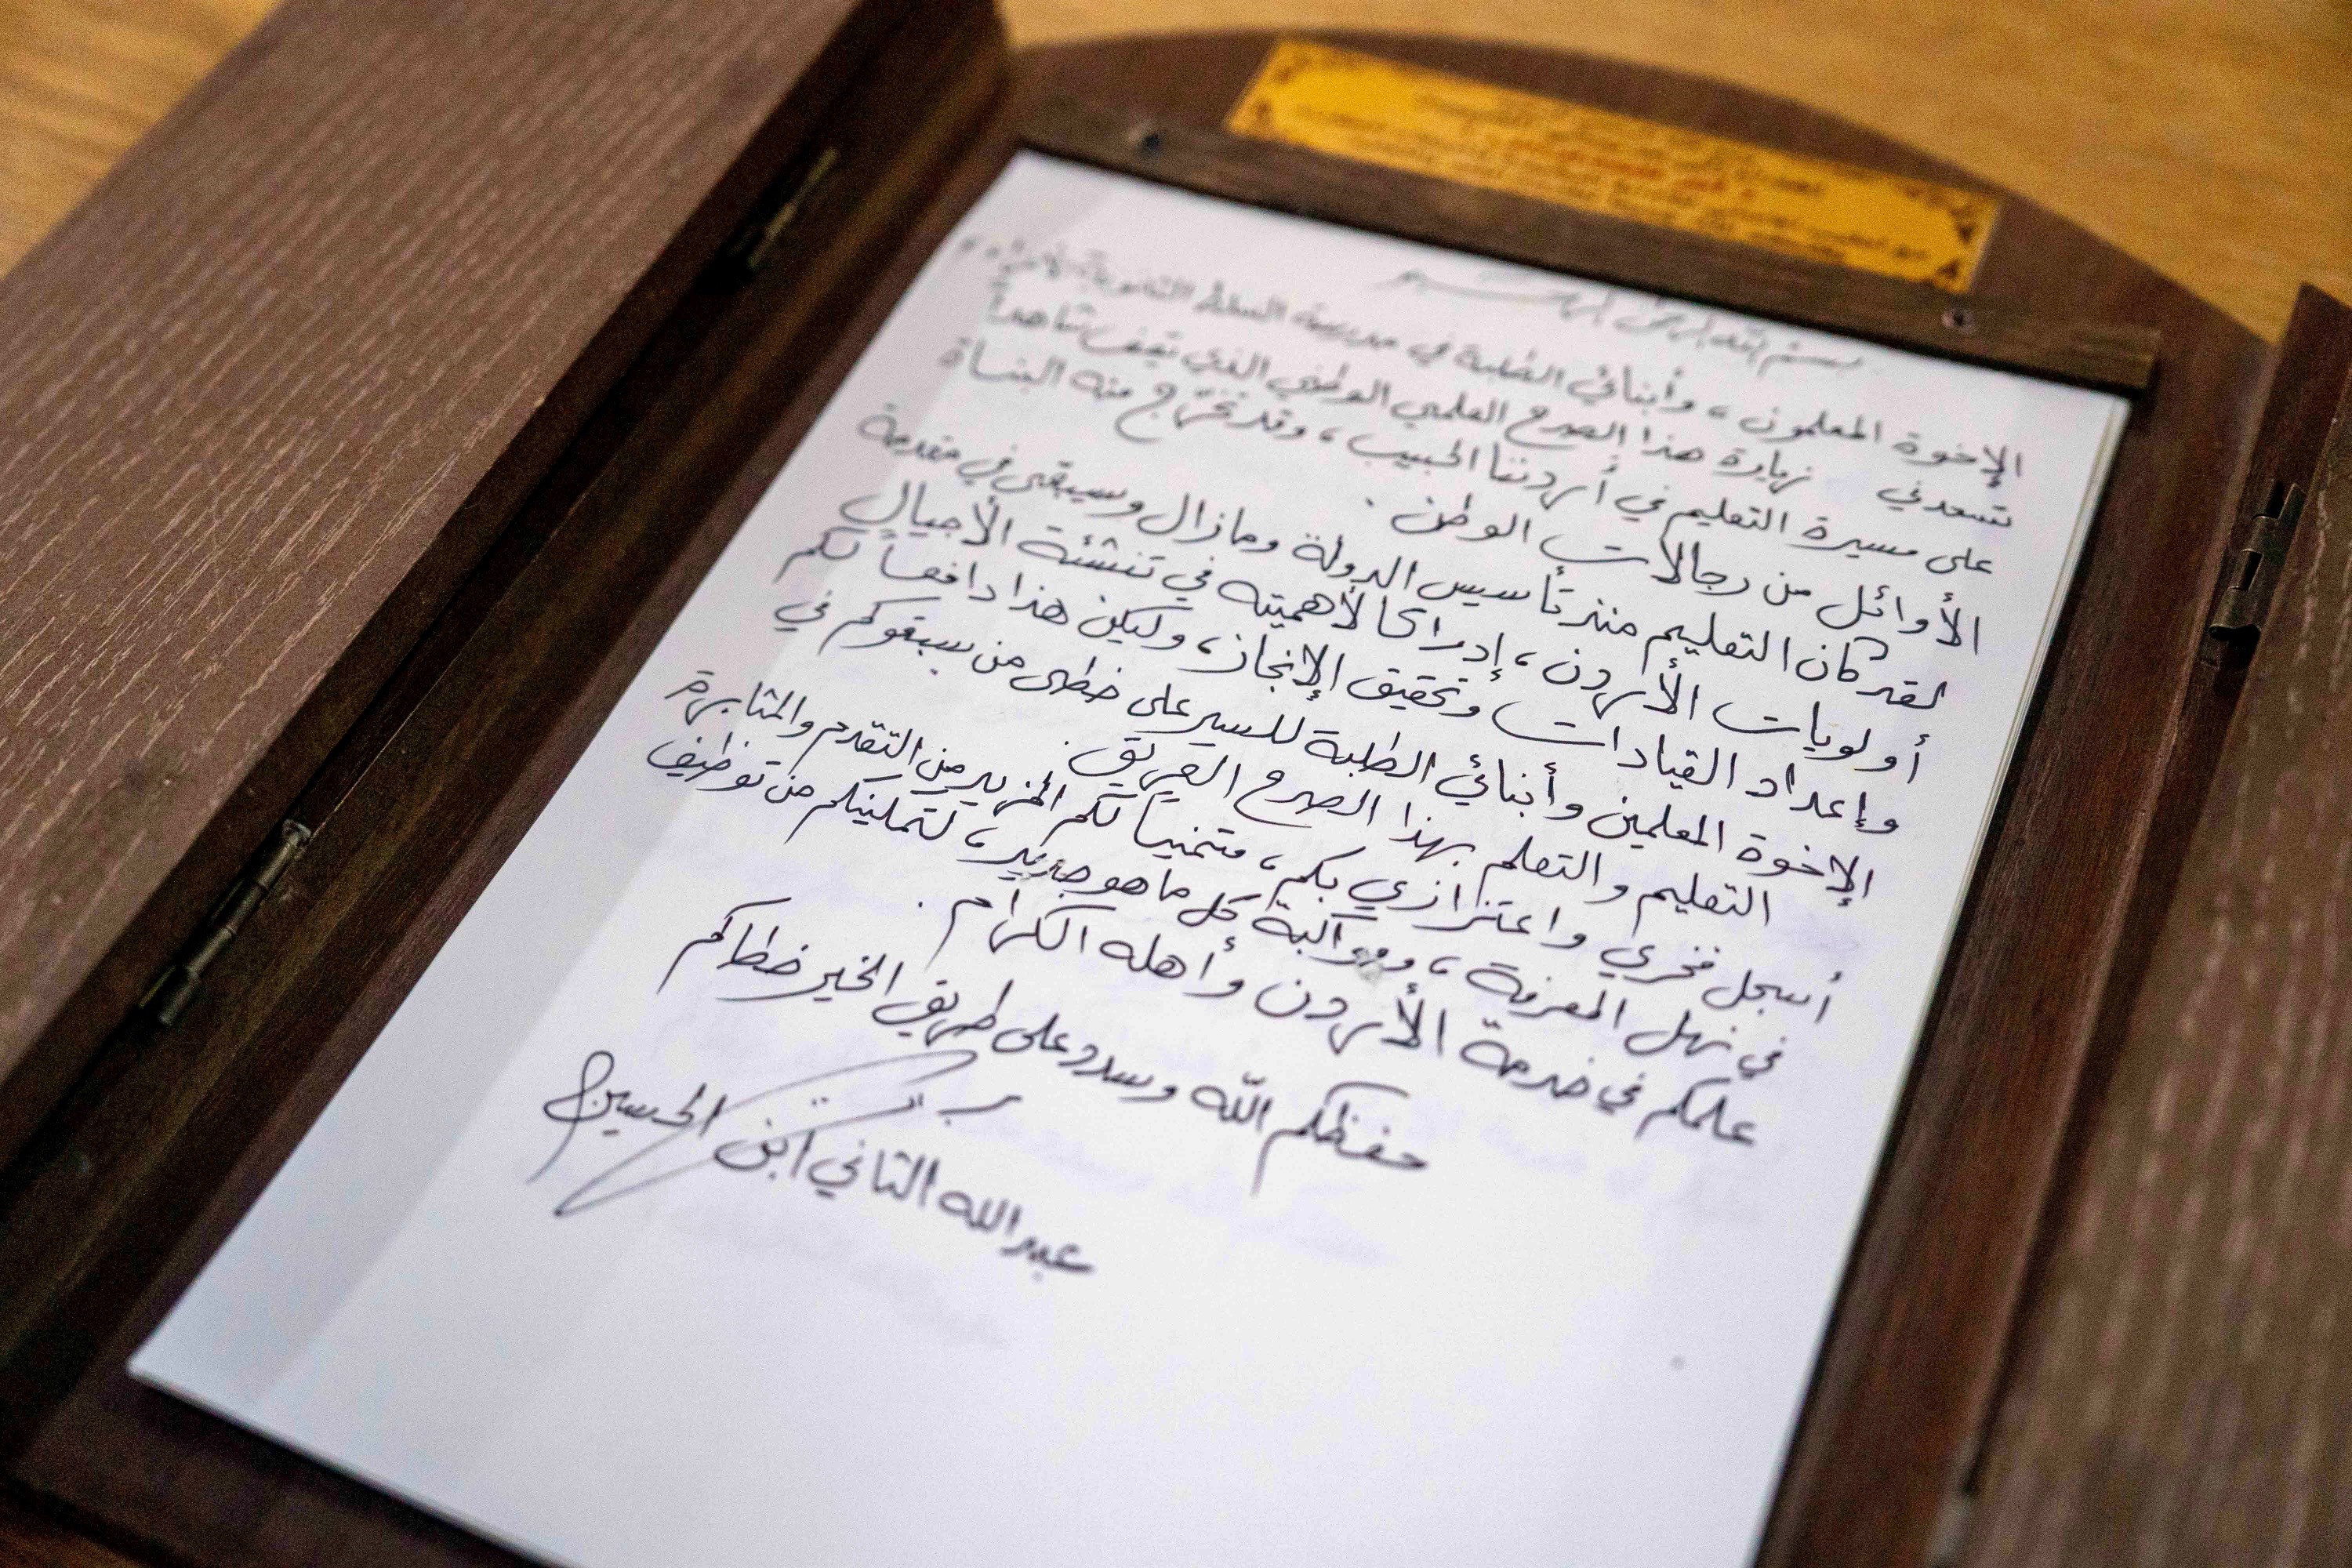 بسم الله الرحمن الرحيم
الإخوة المعلمون، وأبنائي الطلبة في مدرسة السلط الثانوية
تسعدني زيارة هذا الصرح العلمي الوطني الذي يقف شاهداً
على مسيرة التعليم في أردننا الحبيب، وقد تخرّج منه البناة
الأوائل من رجالات الوطن.
لقد كان التعليم منذ تأسيس الدولة ومازال وسيبقى في مقدمة
أولويات الأردن، إدراكا لأهميته في تنشئة الأجيال
وإعداد القيادات وتحقيق الإنجاز، وليكن هذا دافعاً لكم
الإخوة المعلمين وأبنائي الطلبة للسير على خطى من سبقوكم في
التعليم والتعلم بهذا الصرح العريق.
أسجل فخري واعتزازي بكم، متمنياً لكم المزيد من التقدم والمثابرة
في نهل المعرفة، ومواكبة كل ما هو جديد، لتمكينكم من توظيف
علمكم في خدمة الأردن وأهله الكرام.
حفظكم الله وسدد على طريق الخير خطاكم
عبدالله الثاني ابن الحسين